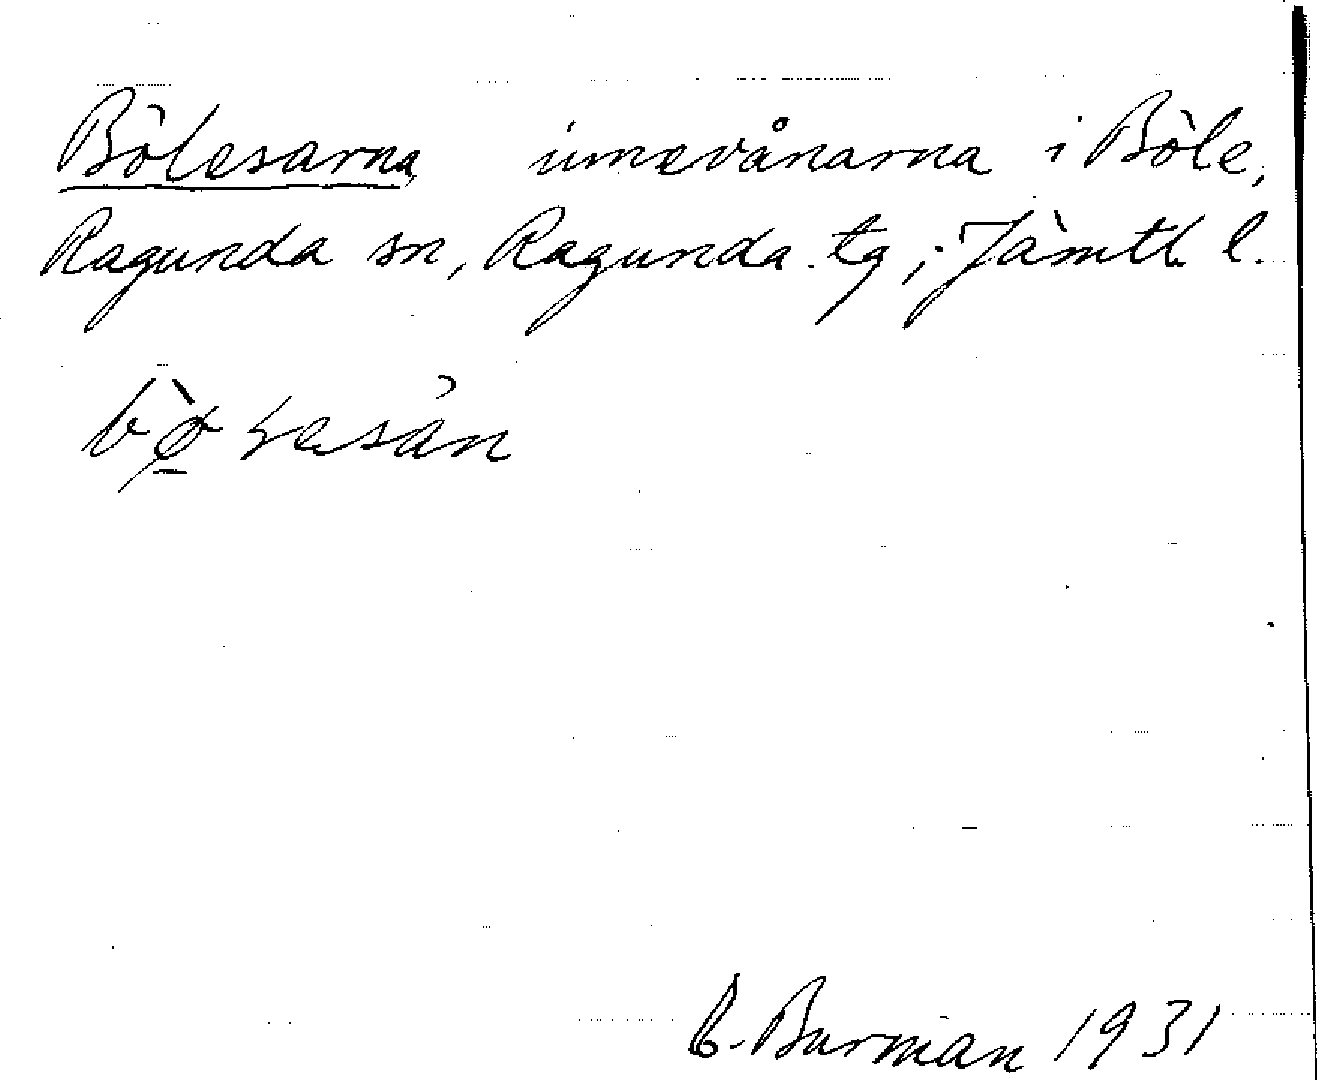 Bölesarna innevånarna i Böle,
Ragunda sn, Ragunda tg, Jämtl. l.
B. Burman 1931